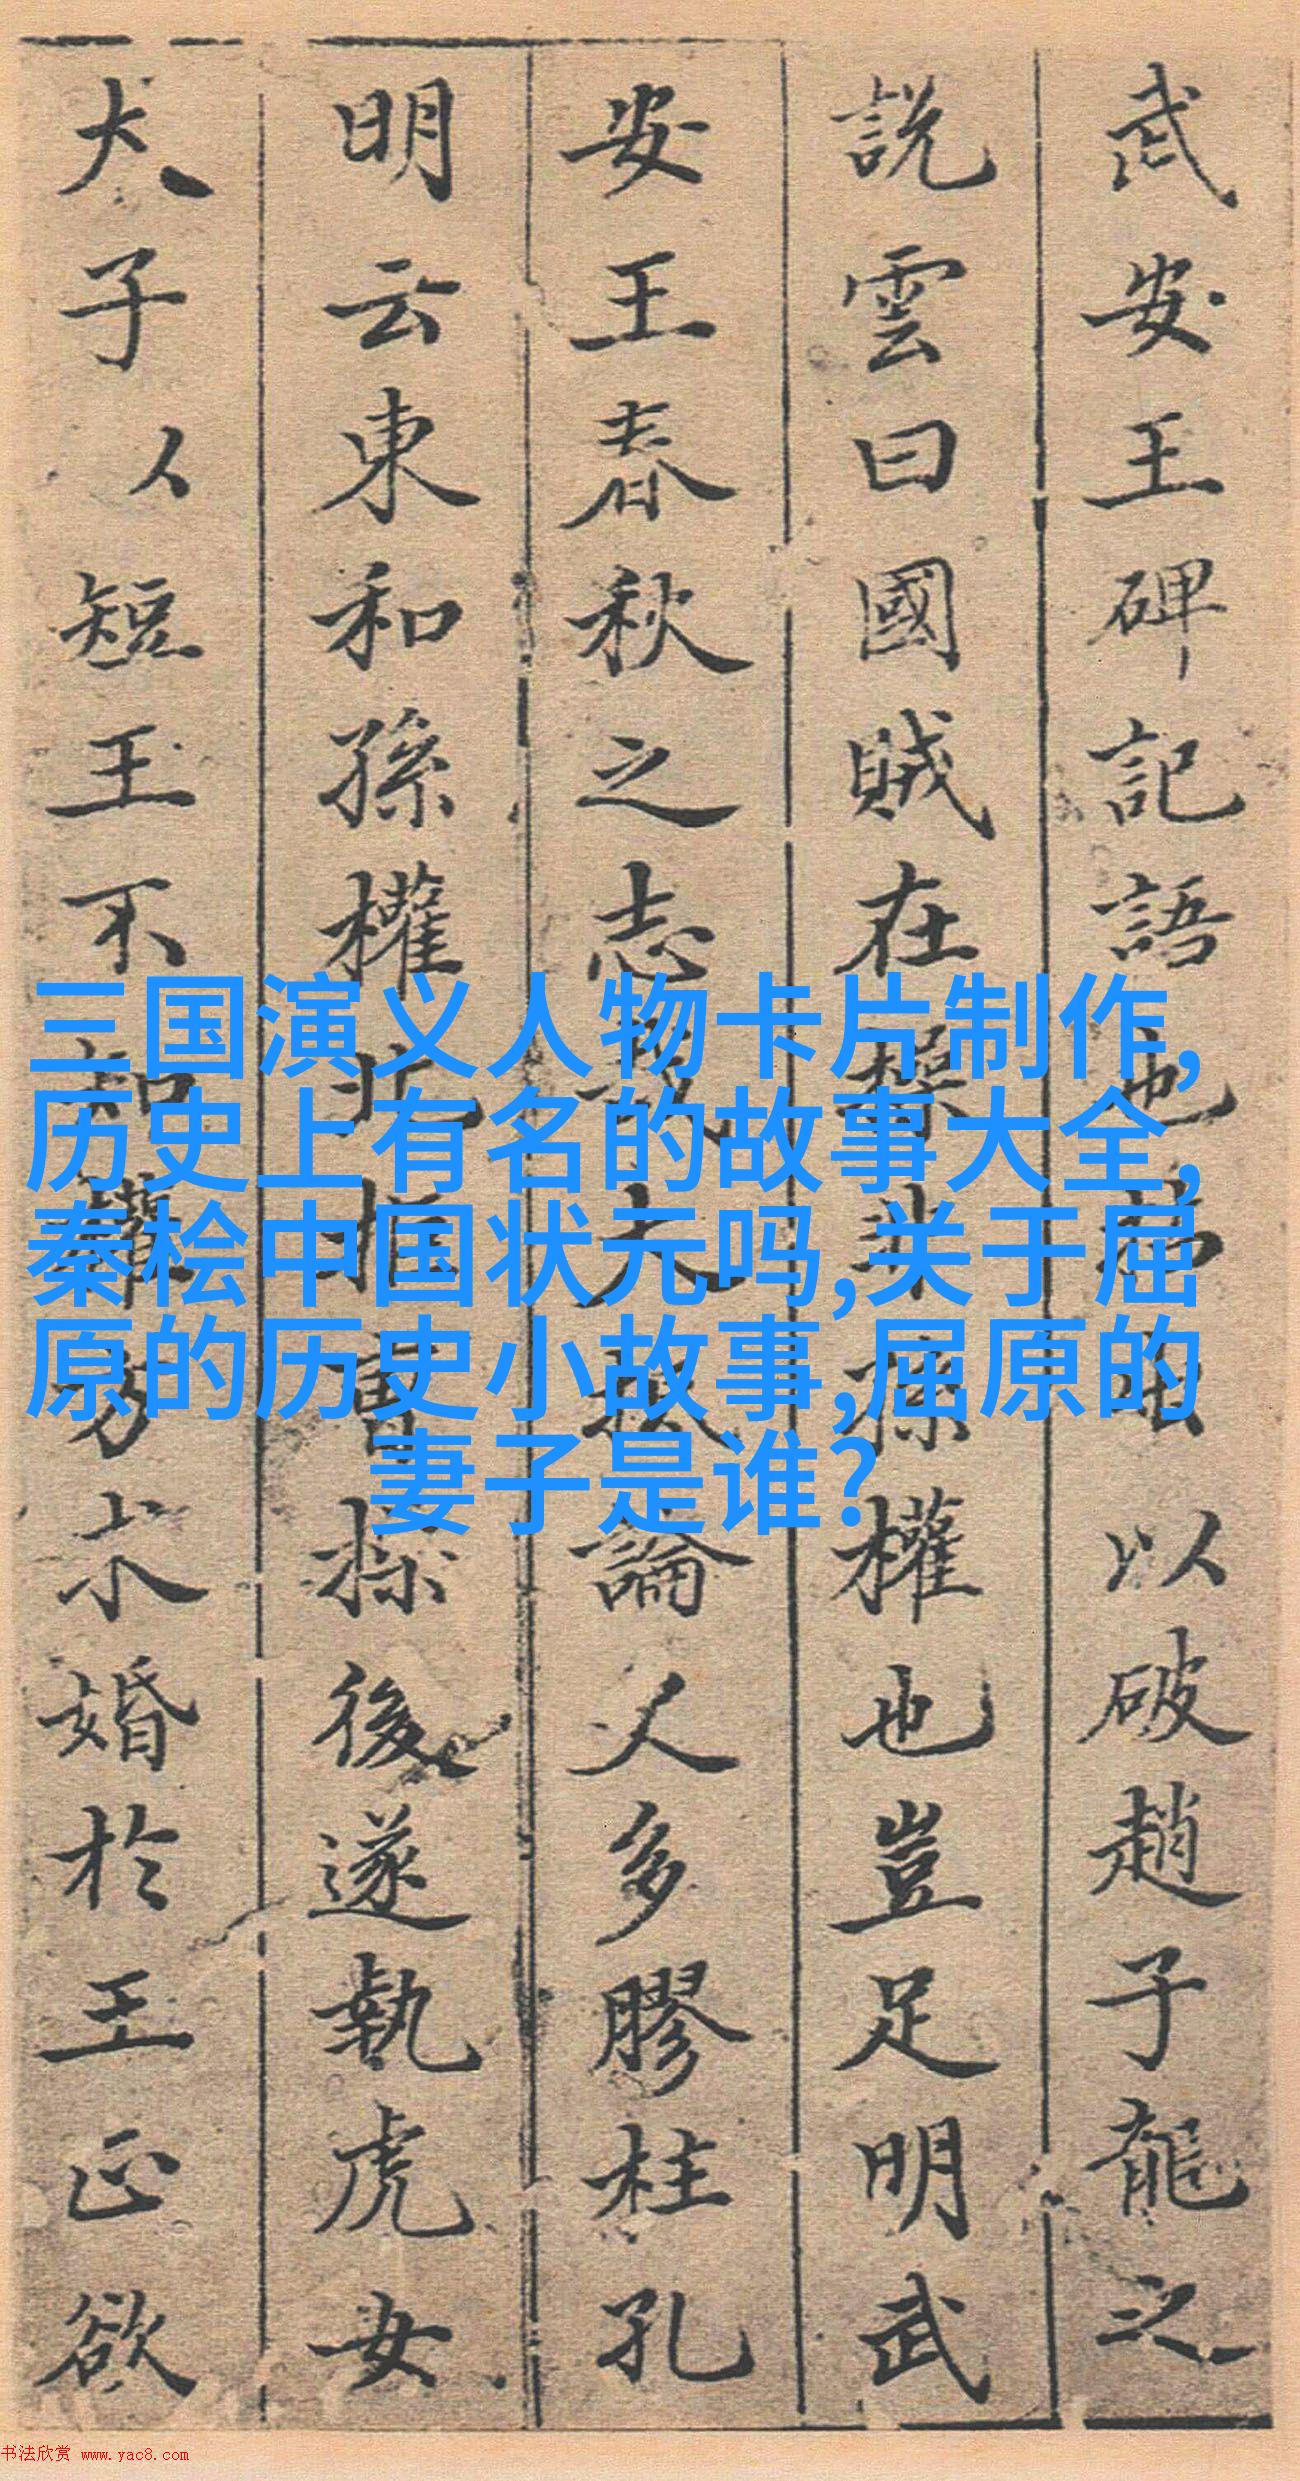 武安王碑記語也昔以破趙子龍之
說雲曰國賊在操非孫權也豈足明武
安王春秋之志哉大抵論人多膠柱孔
明云東和孫權北拒曹操後遂執虎女
犬子以短王不知權方求婚於王正欲
三国演义人物卡片制作,
历史上有名的故事大全,
秦桧中国状元吗,关于屈
原的历史小故事,屈原的
妻子是谁?
书法欣赏 www.yac8.com